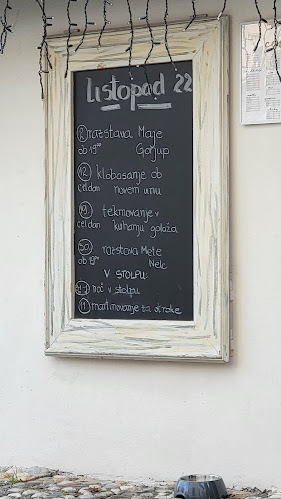 Listopad 22
2 razstava Maje
ob 19°° Gorjup
12 klobasanje ob
cel dan novem vinu
19 tekmovanje v
cel dan kuhanju golaža
30 razstava Mete
ob 19°° Nelc
V STOLPU:
noč v stolpu
11 martinovanje za otroke